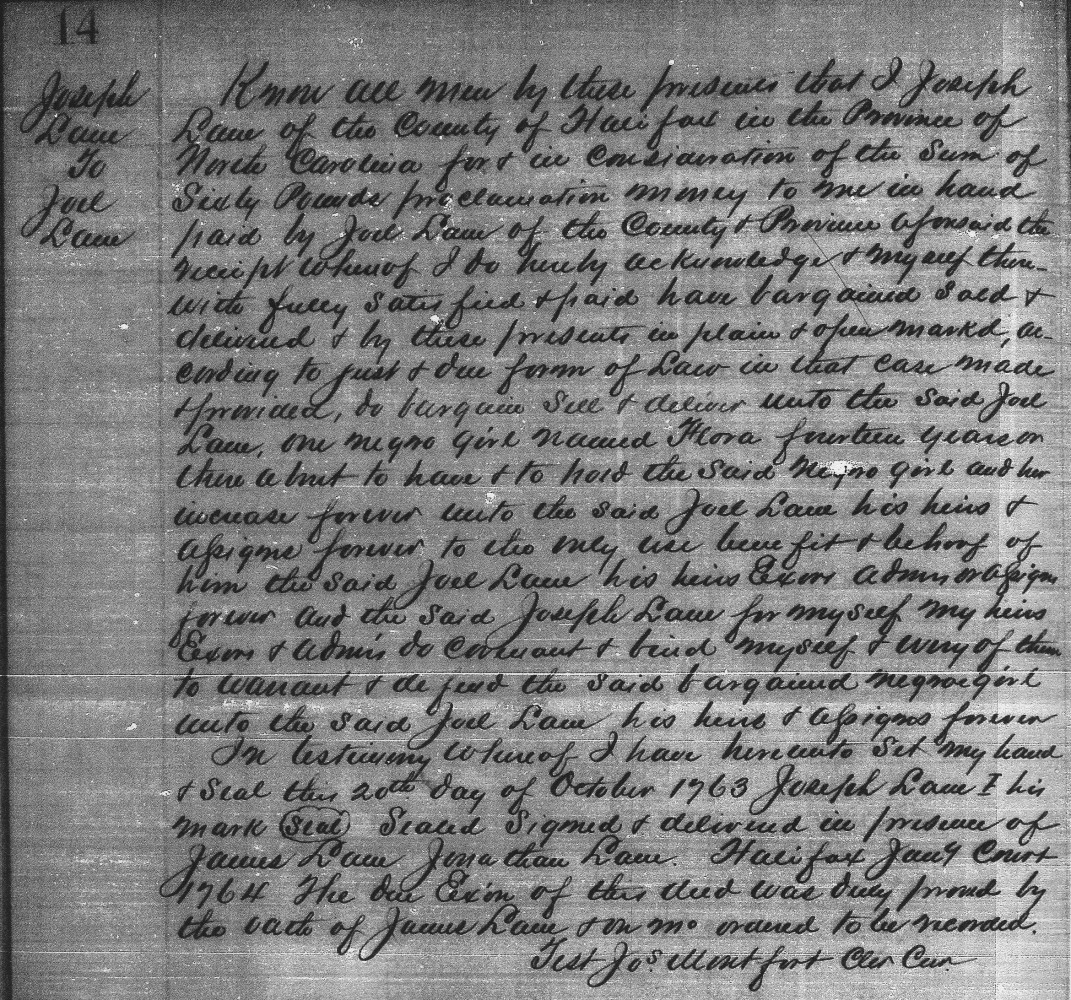 14
Joseph
Lane
To
Joel
Lane
Know all men by these presents that I Joseph
Lane of the County of Halifax in the Province of
North Carolina for & in consideration of the Sum of
Sixty Pounds proclamation money to me in hand
paid by Joel Lane of the County & Province aforesaid the
receipt whereof I do hereby acknowledge & myself there-
with fully satisfied & paid have bargained sold &
delivered & by these presents in plain & open markd, ac-
cording to just & due form of Law in that case made
& provided, do bargain Sell & deliver unto the said Joel
Lane, one negro girl named Flora fourteen years or
there about to have & to hold the said negro girl and her
increase forever unto the said Joel Lane his heirs &
assigns forever to the only use benefit & behoof of
him the said Joel Lane his heirs Exors admrs or assigns
forever and the said Joseph Lane for myself my heirs
Exors & admrs do covenant & bind myself & every of them
to warrant & defend the said bargained negroe girl
unto the said Joel Lane his heirs & assigns forever
In testimony whereof I have hereunto Set my hand
& Seal this 20th day of October 1763 Joseph Lane I his
mark (Seal) Sealed Signed & delivered in presence of
James Lane Jonathan Lane. Halifax Jany Court
1764 The due Ex'on of this deed was duly proved by
the oath of James Lane & on mo ordered to be recorded.
Test Jos. Montfort Cler Cur.